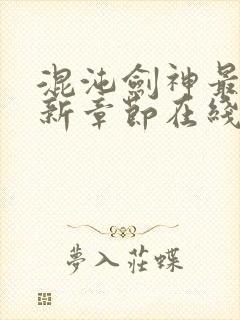 混沌劍神最
新章節在綫
夢入莊蝶